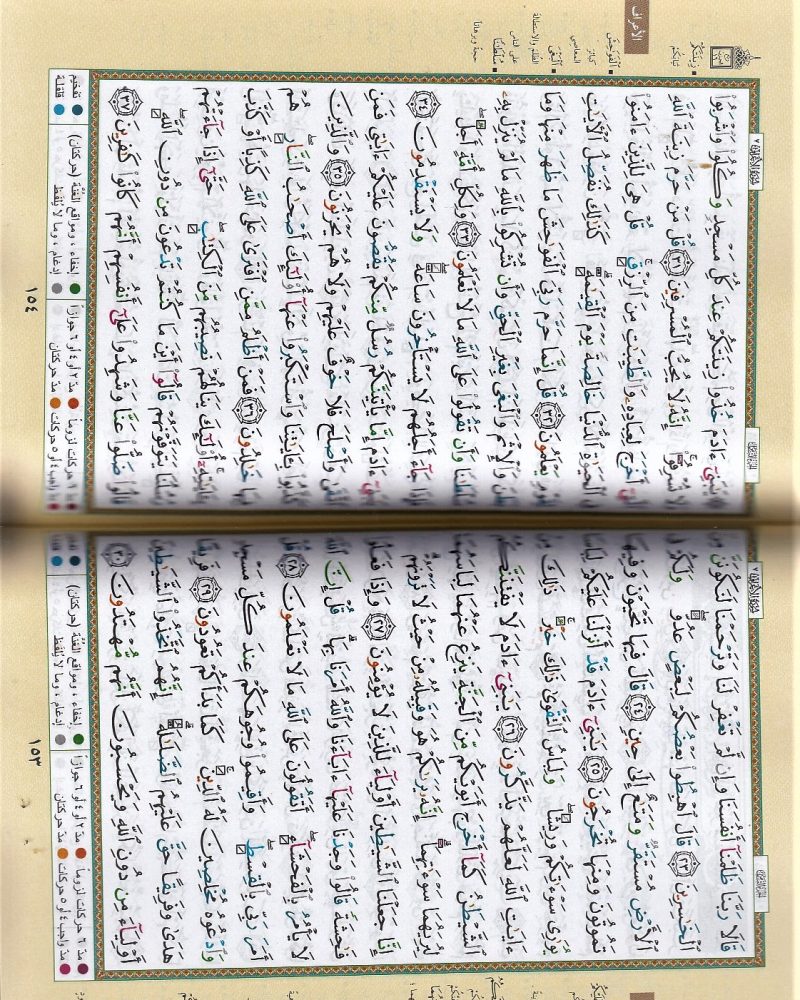 سورة الأعراف ٧
قَالَا رَبَّنَا ظَلَمْنَآ أَنفُسَنَا وَإِن لَّمْ تَغْفِرْ لَنَا وَتَرْحَمْنَا لَنَكُونَنَّ مِنَ
ٱلْخَٰسِرِينَ ٢٣ قَالَ ٱهْبِطُوا۟ بَعْضُكُمْ لِبَعْضٍ عَدُوٌّ ۖ وَلَكُمْ فِى
ٱلْأَرْضِ مُسْتَقَرٌّ وَمَتَٰعٌ إِلَىٰ حِينٍ ٢٤ قَالَ فِيهَا تَحْيَوْنَ وَفِيهَا
تَمُوتُونَ وَمِنْهَا تُخْرَجُونَ ٢٥ يَٰبَنِىٓ ءَادَمَ قَدْ أَنزَلْنَا عَلَيْكُمْ لِبَاسًا
يُوَٰرِى سَوْءَٰتِكُمْ وَرِيشًا ۖ وَلِبَاسُ ٱلتَّقْوَىٰ ذَٰلِكَ خَيْرٌ ۚ ذَٰلِكَ مِنْ
ءَايَٰتِ ٱللَّهِ لَعَلَّهُمْ يَذَّكَّرُونَ ٢٦ يَٰبَنِىٓ ءَادَمَ لَا يَفْتِنَنَّكُمُ
ٱلشَّيْطَٰنُ كَمَآ أَخْرَجَ أَبَوَيْكُم مِّنَ ٱلْجَنَّةِ يَنزِعُ عَنْهُمَا لِبَاسَهُمَا
لِيُرِيَهُمَا سَوْءَٰتِهِمَآ ۗ إِنَّهُۥ يَرَىٰكُمْ هُوَ وَقَبِيلُهُۥ مِنْ حَيْثُ لَا تَرَوْنَهُمْ ۗ
إِنَّا جَعَلْنَا ٱلشَّيَٰطِينَ أَوْلِيَآءَ لِلَّذِينَ لَا يُؤْمِنُونَ ٢٧ وَإِذَا فَعَلُوا۟
فَٰحِشَةً قَالُوا۟ وَجَدْنَا عَلَيْهَآ ءَابَآءَنَا وَٱللَّهُ أَمَرَنَا بِهَا ۗ قُلْ إِنَّ ٱللَّهَ
لَا يَأْمُرُ بِٱلْفَحْشَآءِ ۖ أَتَقُولُونَ عَلَى ٱللَّهِ مَا لَا تَعْلَمُونَ ٢٨ قُلْ
أَمَرَ رَبِّى بِٱلْقِسْطِ ۖ وَأَقِيمُوا۟ وُجُوهَكُمْ عِندَ كُلِّ مَسْجِدٍ
وَٱدْعُوهُ مُخْلِصِينَ لَهُ ٱلدِّينَ ۚ كَمَا بَدَأَكُمْ تَعُودُونَ ٢٩ فَرِيقًا
هَدَىٰ وَفَرِيقًا حَقَّ عَلَيْهِمُ ٱلضَّلَٰلَةُ ۗ إِنَّهُمُ ٱتَّخَذُوا۟ ٱلشَّيَٰطِينَ
أَوْلِيَآءَ مِن دُونِ ٱللَّهِ وَيَحْسَبُونَ أَنَّهُم مُّهْتَدُونَ ٣٠
مدّ ٦ حركات لزوماً مدّ ٢ أو ٤ أو ٦ جوازاً إخفاء ، ومواقع الغنّة (حركتان)
مدّ واجب ٤ أو ٥ حركات مدّ حركتان إدغام ، وما لا يُلفظ
١٥٣
سورة الأعراف ٧
الأعراف
يَٰبَنِىٓ ءَادَمَ خُذُوا۟ زِينَتَكُمْ عِندَ كُلِّ مَسْجِدٍ وَكُلُوا۟ وَٱشْرَبُوا۟
وَلَا تُسْرِفُوٓا۟ ۚ إِنَّهُۥ لَا يُحِبُّ ٱلْمُسْرِفِينَ ٣١ قُلْ مَنْ حَرَّمَ زِينَةَ ٱللَّهِ
ٱلَّتِىٓ أَخْرَجَ لِعِبَادِهِۦ وَٱلطَّيِّبَٰتِ مِنَ ٱلرِّزْقِ ۚ قُلْ هِىَ لِلَّذِينَ ءَامَنُوا۟
فِى ٱلْحَيَوٰةِ ٱلدُّنْيَا خَالِصَةً يَوْمَ ٱلْقِيَٰمَةِ ۗ كَذَٰلِكَ نُفَصِّلُ ٱلْءَايَٰتِ
لِقَوْمٍ يَعْلَمُونَ ٣٢ قُلْ إِنَّمَا حَرَّمَ رَبِّىَ ٱلْفَوَٰحِشَ مَا ظَهَرَ مِنْهَا وَمَا
بَطَنَ وَٱلْإِثْمَ وَٱلْبَغْىَ بِغَيْرِ ٱلْحَقِّ وَأَن تُشْرِكُوا۟ بِٱللَّهِ مَا لَمْ يُنَزِّلْ بِهِۦ
سُلْطَٰنًا وَأَن تَقُولُوا۟ عَلَى ٱللَّهِ مَا لَا تَعْلَمُونَ ٣٣ وَلِكُلِّ أُمَّةٍ أَجَلٌ ۖ
فَإِذَا جَآءَ أَجَلُهُمْ لَا يَسْتَأْخِرُونَ سَاعَةً ۖ وَلَا يَسْتَقْدِمُونَ ٣٤
يَٰبَنِىٓ ءَادَمَ إِمَّا يَأْتِيَنَّكُمْ رُسُلٌ مِّنكُمْ يَقُصُّونَ عَلَيْكُمْ ءَايَٰتِى ۙ فَمَنِ
ٱتَّقَىٰ وَأَصْلَحَ فَلَا خَوْفٌ عَلَيْهِمْ وَلَا هُمْ يَحْزَنُونَ ٣٥ وَٱلَّذِينَ
كَذَّبُوا۟ بِـَٔايَٰتِنَا وَٱسْتَكْبَرُوا۟ عَنْهَآ أُو۟لَٰٓئِكَ أَصْحَٰبُ ٱلنَّارِ ۖ هُمْ
فِيهَا خَٰلِدُونَ ٣٦ فَمَنْ أَظْلَمُ مِمَّنِ ٱفْتَرَىٰ عَلَى ٱللَّهِ كَذِبًا أَوْ كَذَّبَ
بِـَٔايَٰتِهِۦٓ ۚ أُو۟لَٰٓئِكَ يَنَالُهُمْ نَصِيبُهُم مِّنَ ٱلْكِتَٰبِ ۖ حَتَّىٰٓ إِذَا جَآءَتْهُمْ
رُسُلُنَا يَتَوَفَّوْنَهُمْ قَالُوٓا۟ أَيْنَ مَا كُنتُمْ تَدْعُونَ مِن دُونِ ٱللَّهِ ۖ
قَالُوا۟ ضَلُّوا۟ عَنَّا وَشَهِدُوا۟ عَلَىٰٓ أَنفُسِهِمْ أَنَّهُمْ كَانُوا۟ كَٰفِرِينَ ٣٧
زِينَتَكُمْ
ثيابكم
ٱلْفَوَٰحِشَ
كبائر
المعاصي
ٱلْبَغْىَ
الظلم والاستطالة
على الناس
سُلْطَٰنًا
حجة وبرهانا
مدّ ٦ حركات لزوماً مدّ ٢ أو ٤ أو ٦ جوازاً إخفاء ، ومواقع الغنّة (حركتان) تفخيم
مدّ واجب ٤ أو ٥ حركات مدّ حركتان إدغام ، وما لا يُلفظ قلقلة
١٥٤